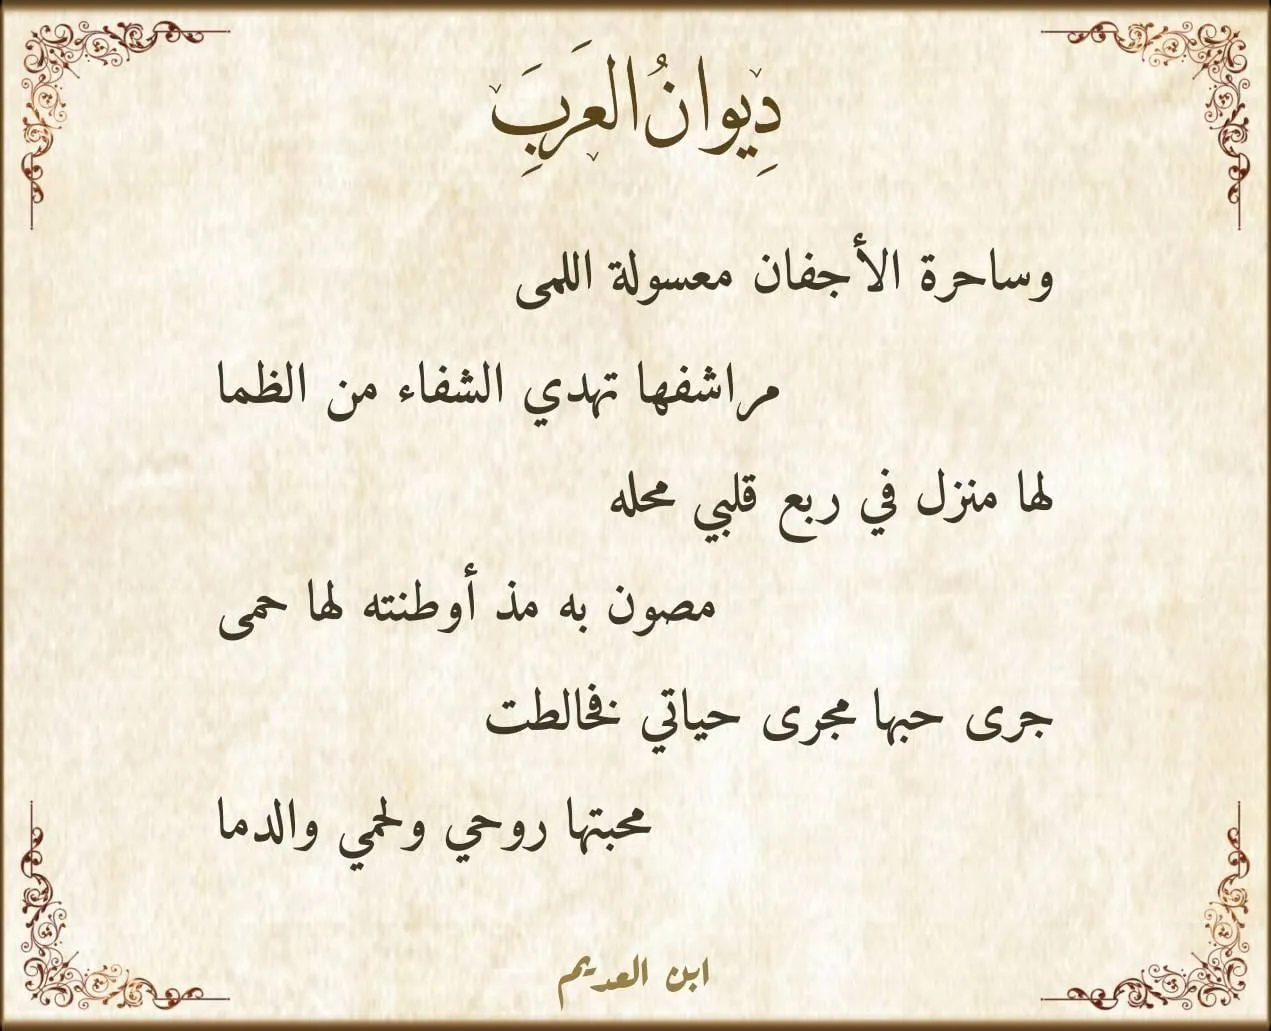 دِيوانُ العَربَِ
وساحرة الأجفان معسولة اللمى
مراشفها تهدي الشفاء من الظما
لها منزل في ربع قلبي محله
مصون به مذ أوطنته لها حمى
جرى حبها مجرى حياتي فخالطت
محبتها روحي ولحمي والدما
ابن العديم